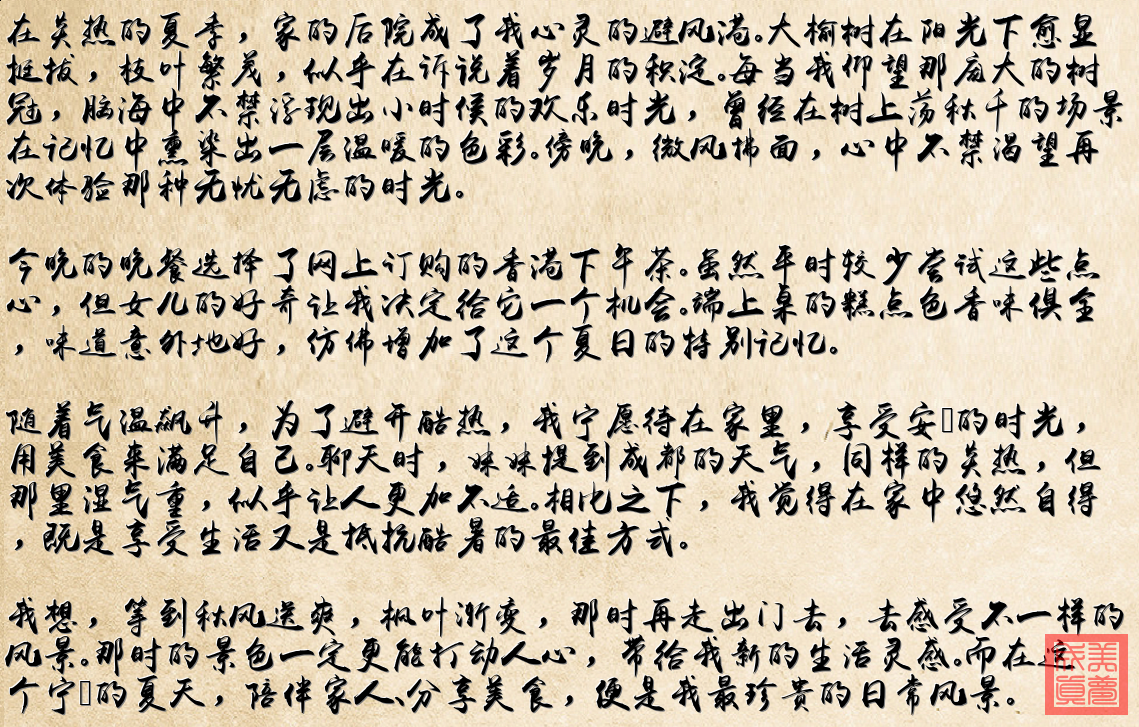 在炎热的夏季，家的后院成了我心灵的避风港。大榆树在阳光下愈显
挺拔，枝叶繁茂，似乎在诉说着岁月的积淀。每当我仰望那庞大的树
冠，脑海中不禁浮现出小时侯的欢乐时光，曾经在树上荡秋千的场景
在记忆中熏染出一层温暖的色彩。傍晚，微风拂面，心中不禁渴望再
次体验那种无忧无虑的时光。
今晚的晚餐选择了网上订购的香港下午茶。虽然平时较少尝试这些点
心，但女儿的好奇让我决定给它一个机会。端上桌的糕点色香味俱全
，味道意外地好，仿佛增加了这个夏日的特别记忆。
随着气温飙升，为了避开酷热，我宁愿待在家里，享受安的时光，
用美食来满足自己。聊天时，妹妹提到成都的天气，同样的炎热，但
那里湿气重，似乎让人更加不适。相比之下，我觉得在家中悠然自得
，既是享受生活又是抵抗酷暑的最佳方式。
我想，等到秋风送爽，枫叶渐变，那时再走出门去，去感受不一样的
风景。那时的景色一定更能打动人心，带给我新的生活灵感。而在这
个宁的夏天，陪伴家人、分享美食，便是我最珍贵的日常风景。